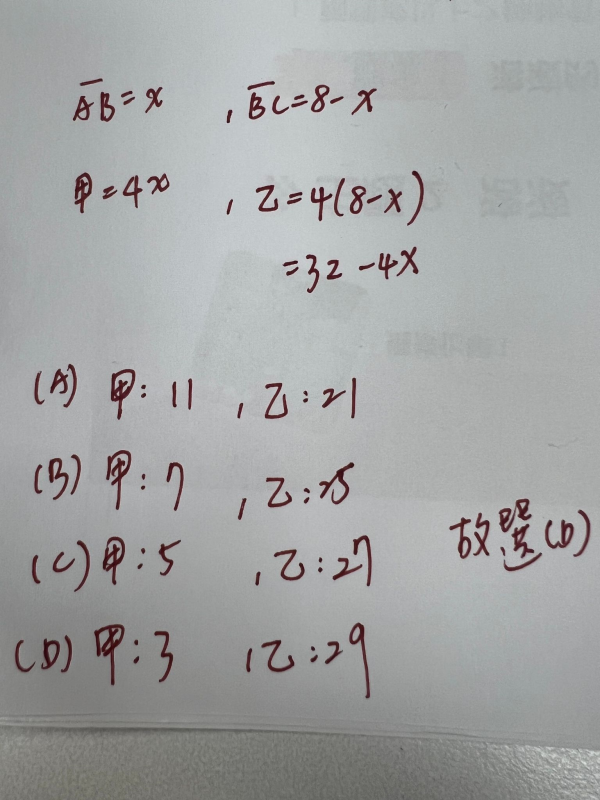 AB=x , BC=8-x
甲=4x , 乙=4(8-x)
=32-4x
(A) 甲:11 , 乙:21
(B) 甲:7 , 乙:25
(C) 甲:5 , 乙:27
故選(D)
(D) 甲:3 , 乙:29